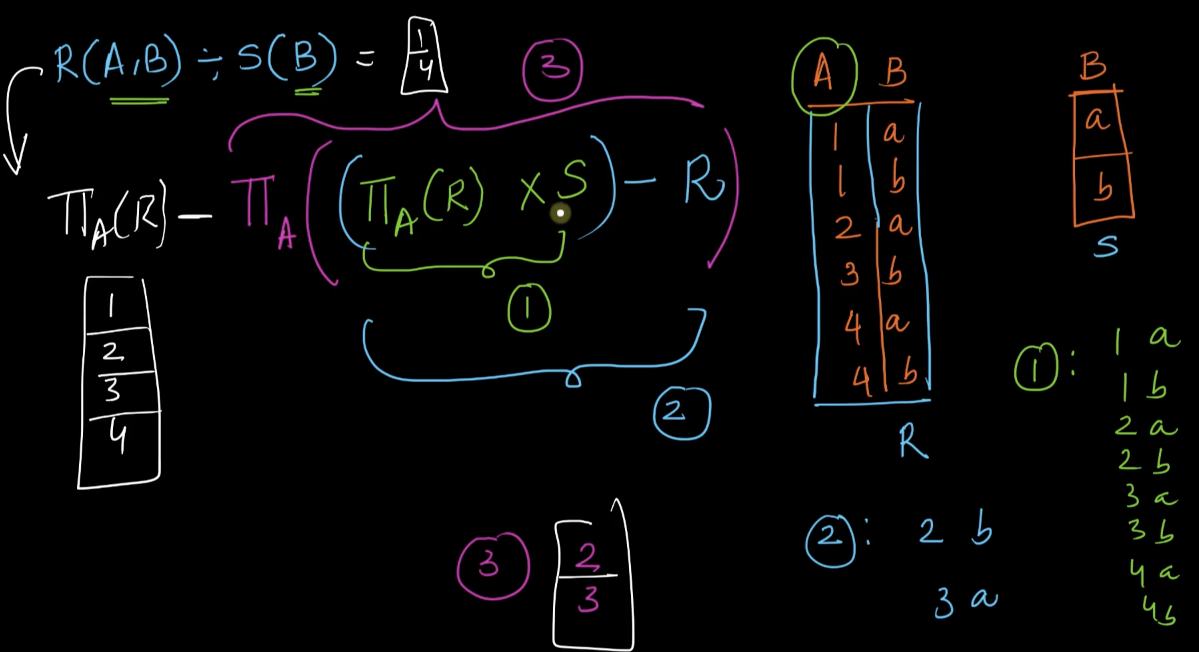 R(A,B) ÷ S(B) = 1 4
3
π_A(R) − π_A((π_A(R) × S) − R)
1
2
1
2
3
4
3
2
3
A B
1 a
1 b
2 a
3 b
4 a
4 b
R
B
a
b
S
1: 1 a
1 b
2 a
2 b
3 a
3 b
4 a
4 b
2: 2 b
3 a